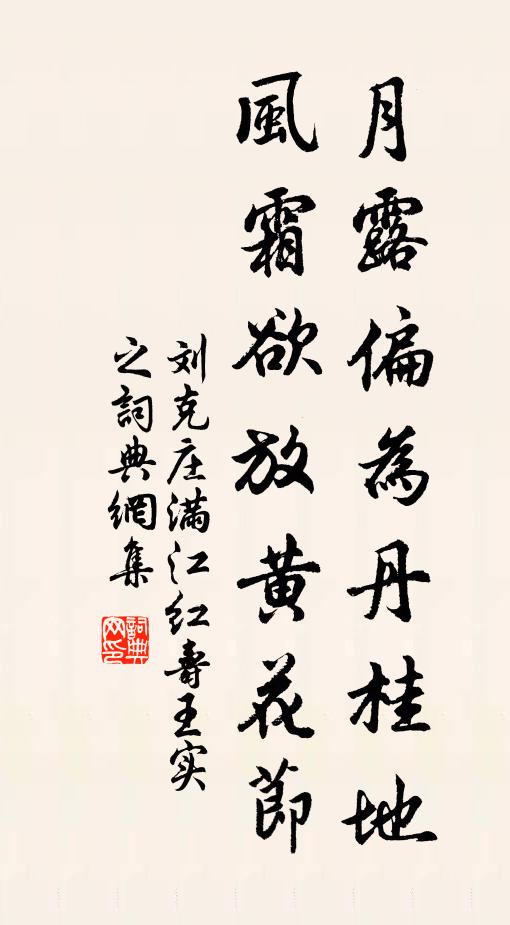 月露偏為丹桂地
風霜欲放黃花節
刘克庄满江红壽王实
之詞典網集
詞典
网印